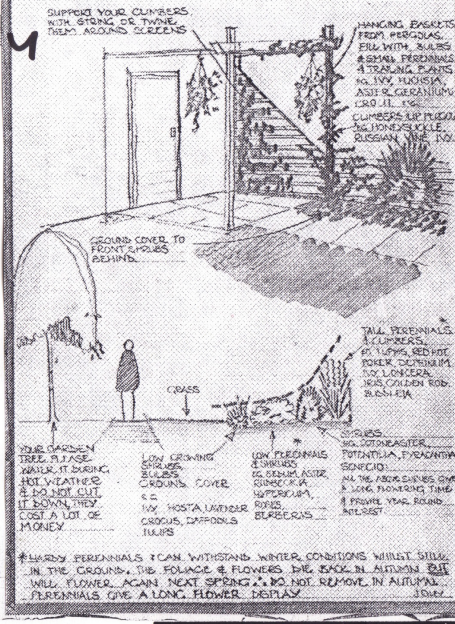 4
SUPPORT YOUR CLIMBERS
WITH STRING OR TWINE
THEM AROUND SCREENS
HANGING BASKETS
FROM PERGOLAS.
FILL WITH BULBS
& SMALL PERENNIALS
& TRAILING PLANTS
EG. IVY, FUCHSIA,
ASTER GERANIUM,
CLIMBERS UP PERGOLA
EG HONEYSUCKLE,
RUSSIAN VINE IVY.
GROUND COVER TO
FRONT, SHRUBS
BEHIND.
TALL PERENNIALS
& CLIMBERS,
EG LUPINS, RED HOT
POKER, DELPHINIUM,
IVY LONICERA
IRIS GOLDEN ROD,
BUDDLEJA
GRASS
YOUR GARDEN
TREE PLEASE
WATER IT DURING
HOT WEATHER
& DO NOT CUT
IT DOWN, THEY
COST A LOT OF
MONEY
LOW GROWING
SHRUBS,
BULBS
GROUND COVER
E.G
IVY HOSTA, LAVENDER
CROCUS, DAFFODILS
TULIPS
LOW PERENNIALS
& SHRUBS
EG. SEDUM, ASTER
RUDBECKIA
HYPERICUM,
ROSES,
BERBERIS
SHRUBS
EG. COTONEASTER,
POTENTILLA, PYRACANTHA
SENECIO.
ALL THE ABOVE SHRUBS GIVE
A LONG FLOWERING TIME
& PROVIDE YEAR ROUND
INTEREST
* HARDY PERENNIALS & CAN WITHSTAND WINTER CONDITIONS WHILST STILL
IN THE GROUND. THE FOLIAGE & FLOWERS DIE BACK IN AUTUMN BUT
WILL FLOWER AGAIN NEXT SPRING ∴ DO NOT REMOVE IN AUTUMN.
PERENNIALS GIVE A LONG FLOWER DISPLAY